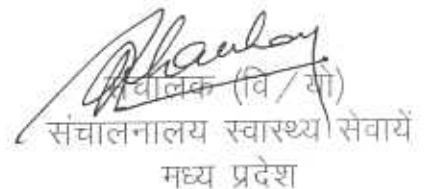 संचालक (वि/यो)
संचालनालय स्वास्थ्य सेवायें
मध्य प्रदेश